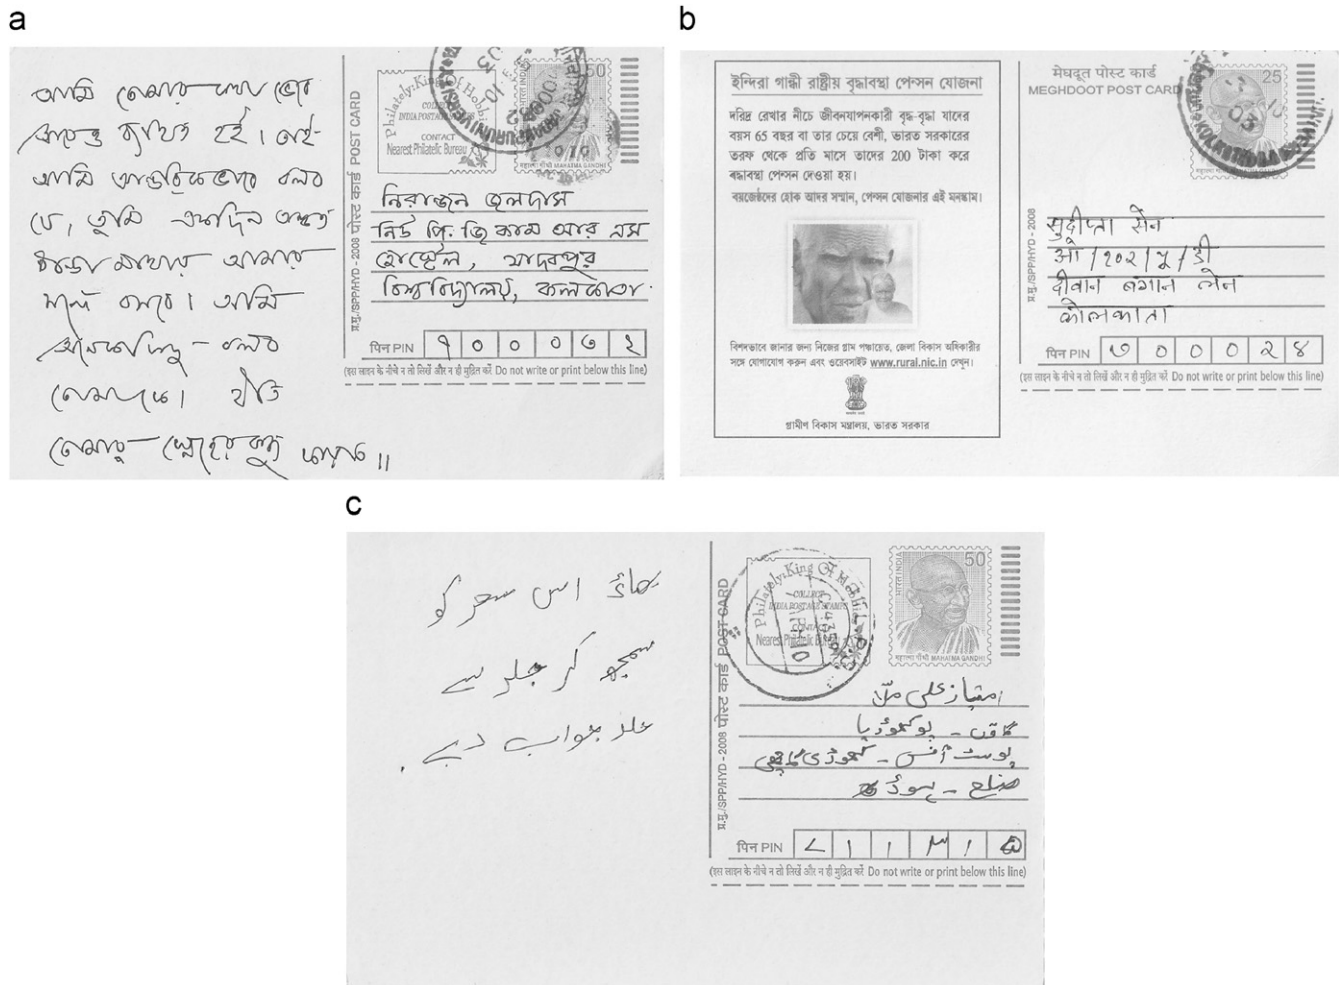 a
আমি তোমার কথা ভেবে
হই। তাই-
আমি আন্তরিকভাবে বলব
যে, তুমি একদিন অন্তত
ঠাণ্ডা মাথায় আমার
সঙ্গে বসবে। আমি
অনেককিছু - বলব
তোমাকে। ইতি
তোমার - স্নেহের
Philately:King Of Hobbies
COLLECT
INDIA POSTAGE STAMPS
CONTACT
Nearest Philatelic Bureau
भारत INDIA
50
महात्मा गाँधी MAHATMA GANDHI
प्र.मु./SPP/HYD - 2008 पोस्ट कार्ड POST CARD
নিরাঞ্জন জলদাস
নিউ পি. জি কাম আর এস
হোস্টেল, যাদবপুর
বিশ্ববিদ্যালয়, কলকাতা
पिन PIN ৭ ০ ০ ০ ৩ ২
(इस लाइन के नीचे न तो लिखें और न ही मुद्रित करें Do not write or print below this line)
b
ইন্দিরা গান্ধী রাষ্ট্রীয় বৃদ্ধাবস্থা পেন্সন যোজনা
দরিদ্র রেখার নীচে জীবনযাপনকারী বৃদ্ধ-বৃদ্ধা যাদের
বয়স 65 বছর বা তার চেয়ে বেশী, ভারত সরকারের
তরফ থেকে প্রতি মাসে তাদের 200 টাকা করে
বৃদ্ধাবস্থা পেন্সন দেওয়া হয়।
বয়জেষ্ঠদের হোক আদর সম্মান, পেন্সন যোজনার এই মনষ্কাম।
বিশদভাবে জানার জন্য নিজের গ্রাম পঞ্চায়েত, জেলা বিকাস অধিকারীর
সঙ্গে যোগাযোগ করুন এবং ওয়েবসাইট www.rural.nic.in দেখুন।
গ্রামীণ বিকাস মন্ত্রালয়, ভারত সরকার
मेघदूत पोस्ट कार्ड
MEGHDOOT POST CARD
25
प्र.मु./SPP/HYD - 2008
सुदीप्ता सेन
ओ/२०२/यू/डी
दीवान बगान लेन
कोलकाता
पिन PIN ७ ० ० ० २ ४
(इस लाइन के नीचे न तो लिखें और न ही मुद्रित करें Do not write or print below this line)
c
بھائ اس سعر کو
سمجھ کر جلد سے
جلد جواب دے .
Philately:King Of Hobbies
COLLECT
INDIA POSTAGE STAMPS
CONTACT
Nearest Philatelic Bureau
भारत INDIA
50
महात्मा गाँधी MAHATMA GANDHI
प्र.मु./SPP/HYD - 2008 पोस्ट कार्ड POST CARD
امتیاز علی ملا
پوسٹ آفس -
ضلع - ہوڑہ
पिन PIN ۷ ۱ ۱ ۳ ۱ ۵
(इस लाइन के नीचे न तो लिखें और न ही मुद्रित करें Do not write or print below this line)